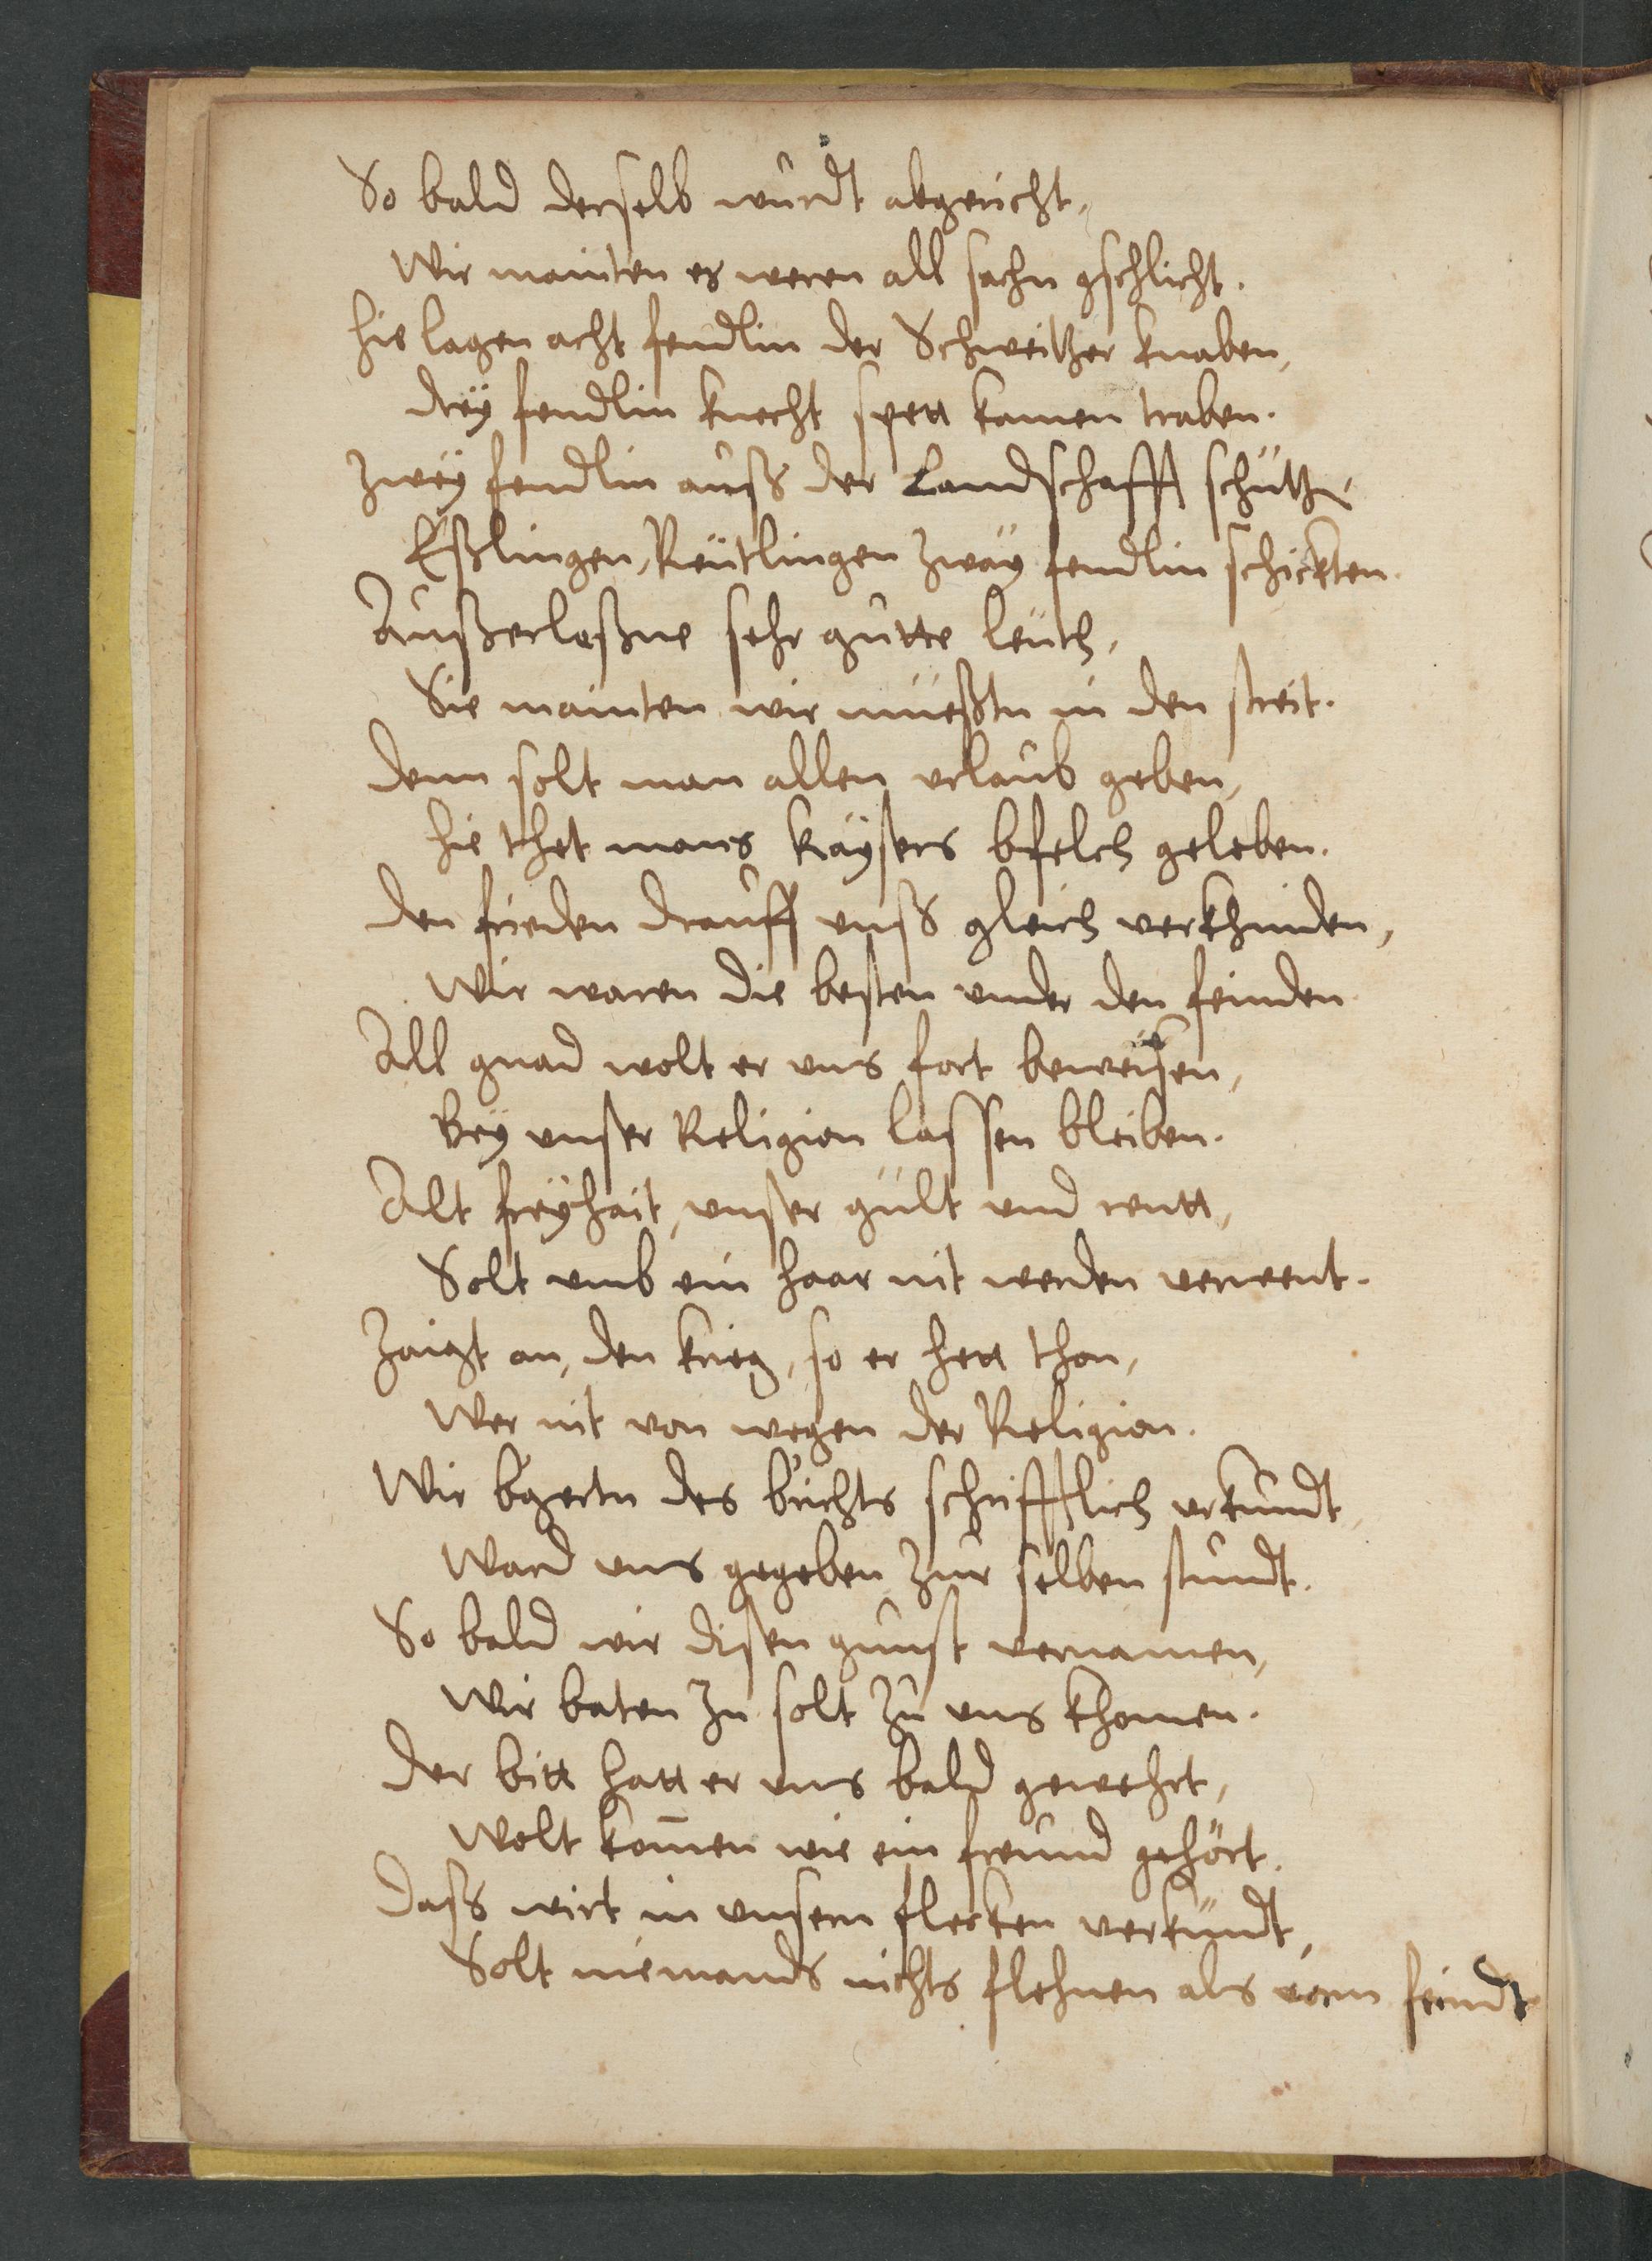 So bald derselb wurdt abgericht,
Wir mainten es weren all sachn gschlicht.
Hie lagen acht fendlin der Schweitzer knaben,
Drey fendlin knecht spett kamen traben.
Zwey fendlin auß der Landschafft schütz,
Eßlingen, Reütlingen zway fendlin schickten.
Außerleßne sehr gutte leüth,
Sie mainten wir müeßtn in den streit.
Denn solt man allen urlaub geben,
Hie thet mans kaysers bfelch geleben.
Den frieden drauff unß gleich verkhinden,
Wir waren die besten under den feinden.
All gnad wolt er uns fort beweisen,
Bey unser Religion lassen bleiben.
Alt freyhait, unser gült und rentt,
Solt umb ein haar nit werden verwent.
Zaigt an, den krieg, so er hett thon,
Wer nit von wegen der Religion.
Wir bgertn des brichts schrifftlich urkundt,
Ward uns gegeben zur selben stundt.
So bald wir disen gunst vernamen,
Wir baten Jn solt zu uns khomen.
Der bitt hatt er uns bald gewehrt,
Wolt kom̄en wie ein freund gehört.
Daß wirt in unsern flecken verkündt,
Solt niemands nichts flehnen als vorm feindt